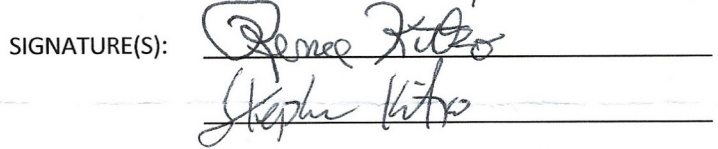 SIGNATURE(S): Renee Kitko
Stephen Kitko